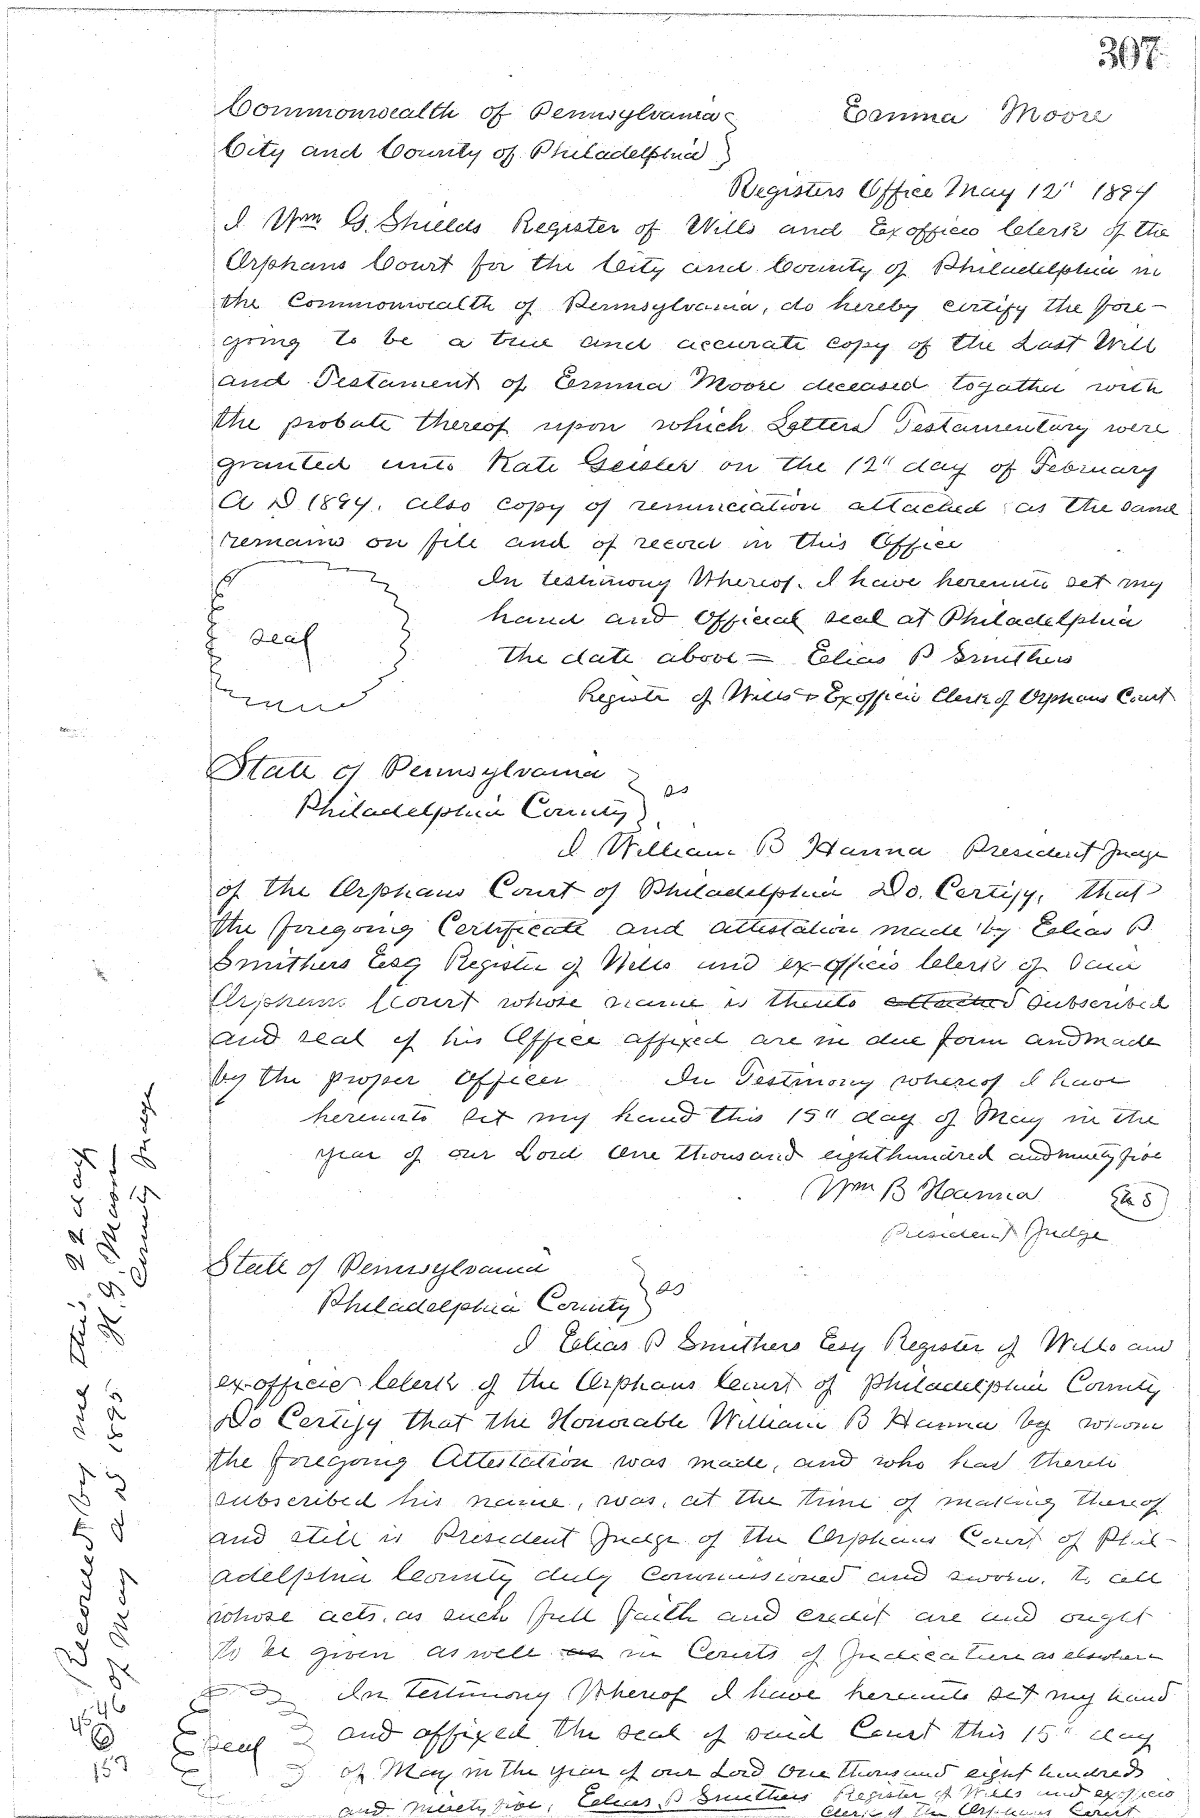 307
Commonwealth of Pennsylvania } Emma Moore
City and County of Philadelphia }
Registers Office May 12" 1894
I Wm G. Shields Register of Wills and Ex officio Clerk of the
Orphans Court for the City and County of Philadelphia in
the Commonwealth of Pennsylvania, do hereby certify the fore-
going to be a true and accurate copy of the Last Will
and Testament of Emma Moore deceased togather with
the probate thereof upon which Letters Testamentary were
granted unto Kate Geisler on the 12" day of February
A D 1894. also copy of renunciation attached as the same
remains on file and of record in this Office
In testimony Whereof. I have hereunto set my
hand and Official seal at Philadelphia
seal
the date above = Elias P Smithers
Register of Wills & Ex officio Clerk of Orphans Court
State of Pennsylvania }
Philadelphia County } ss
I William B Hanna President Judge
of the Orphans Court of Philadelphia Do. Certify, that
the foregoing Certificate and attestation made by Elias P.
Smithers Esq Register of Wills and ex-officio Clerk of Said
Orphans Court whose name is thereto attached subscribed
and seal of his Office affixed are in due form and made
by the proper Officer In Testimony whereof I have
hereunto set my hand this 15" day of May in the
year of our Lord One thousand eight hundred and ninety five
Wm B Hanna
President Judge
State of Pennsylvania }
Philadelphia County } ss
I Elias P Smithers Esq Register of Wills and
ex-officio Clerk of the Orphans Court of Philadelphia County
Do Certify that the Honorable William B Hanna by whom
the foregoing Attestation was made, and who has thereto
subscribed his name, was, at the time of making thereof
and still is President Judge of the Orphans Court of Phil-
adelphia County duly Commissioned and sworn. to all
whose acts. as such full faith and credit are and ought
to be given as well as in Courts of Judicature as elsewhere
In testimony Whereof I have hereunto set my hand
and affixed the seal of said Court this 15" day
seal
of May in the year of our Lord One thousand eight hundred
and ninety five, Elias P Smithers Register of Wills and ex officio
Clerk of the Orphans Court
Recorded by me this 22 day
of May A D 1895 H. G. Mason
County Judge